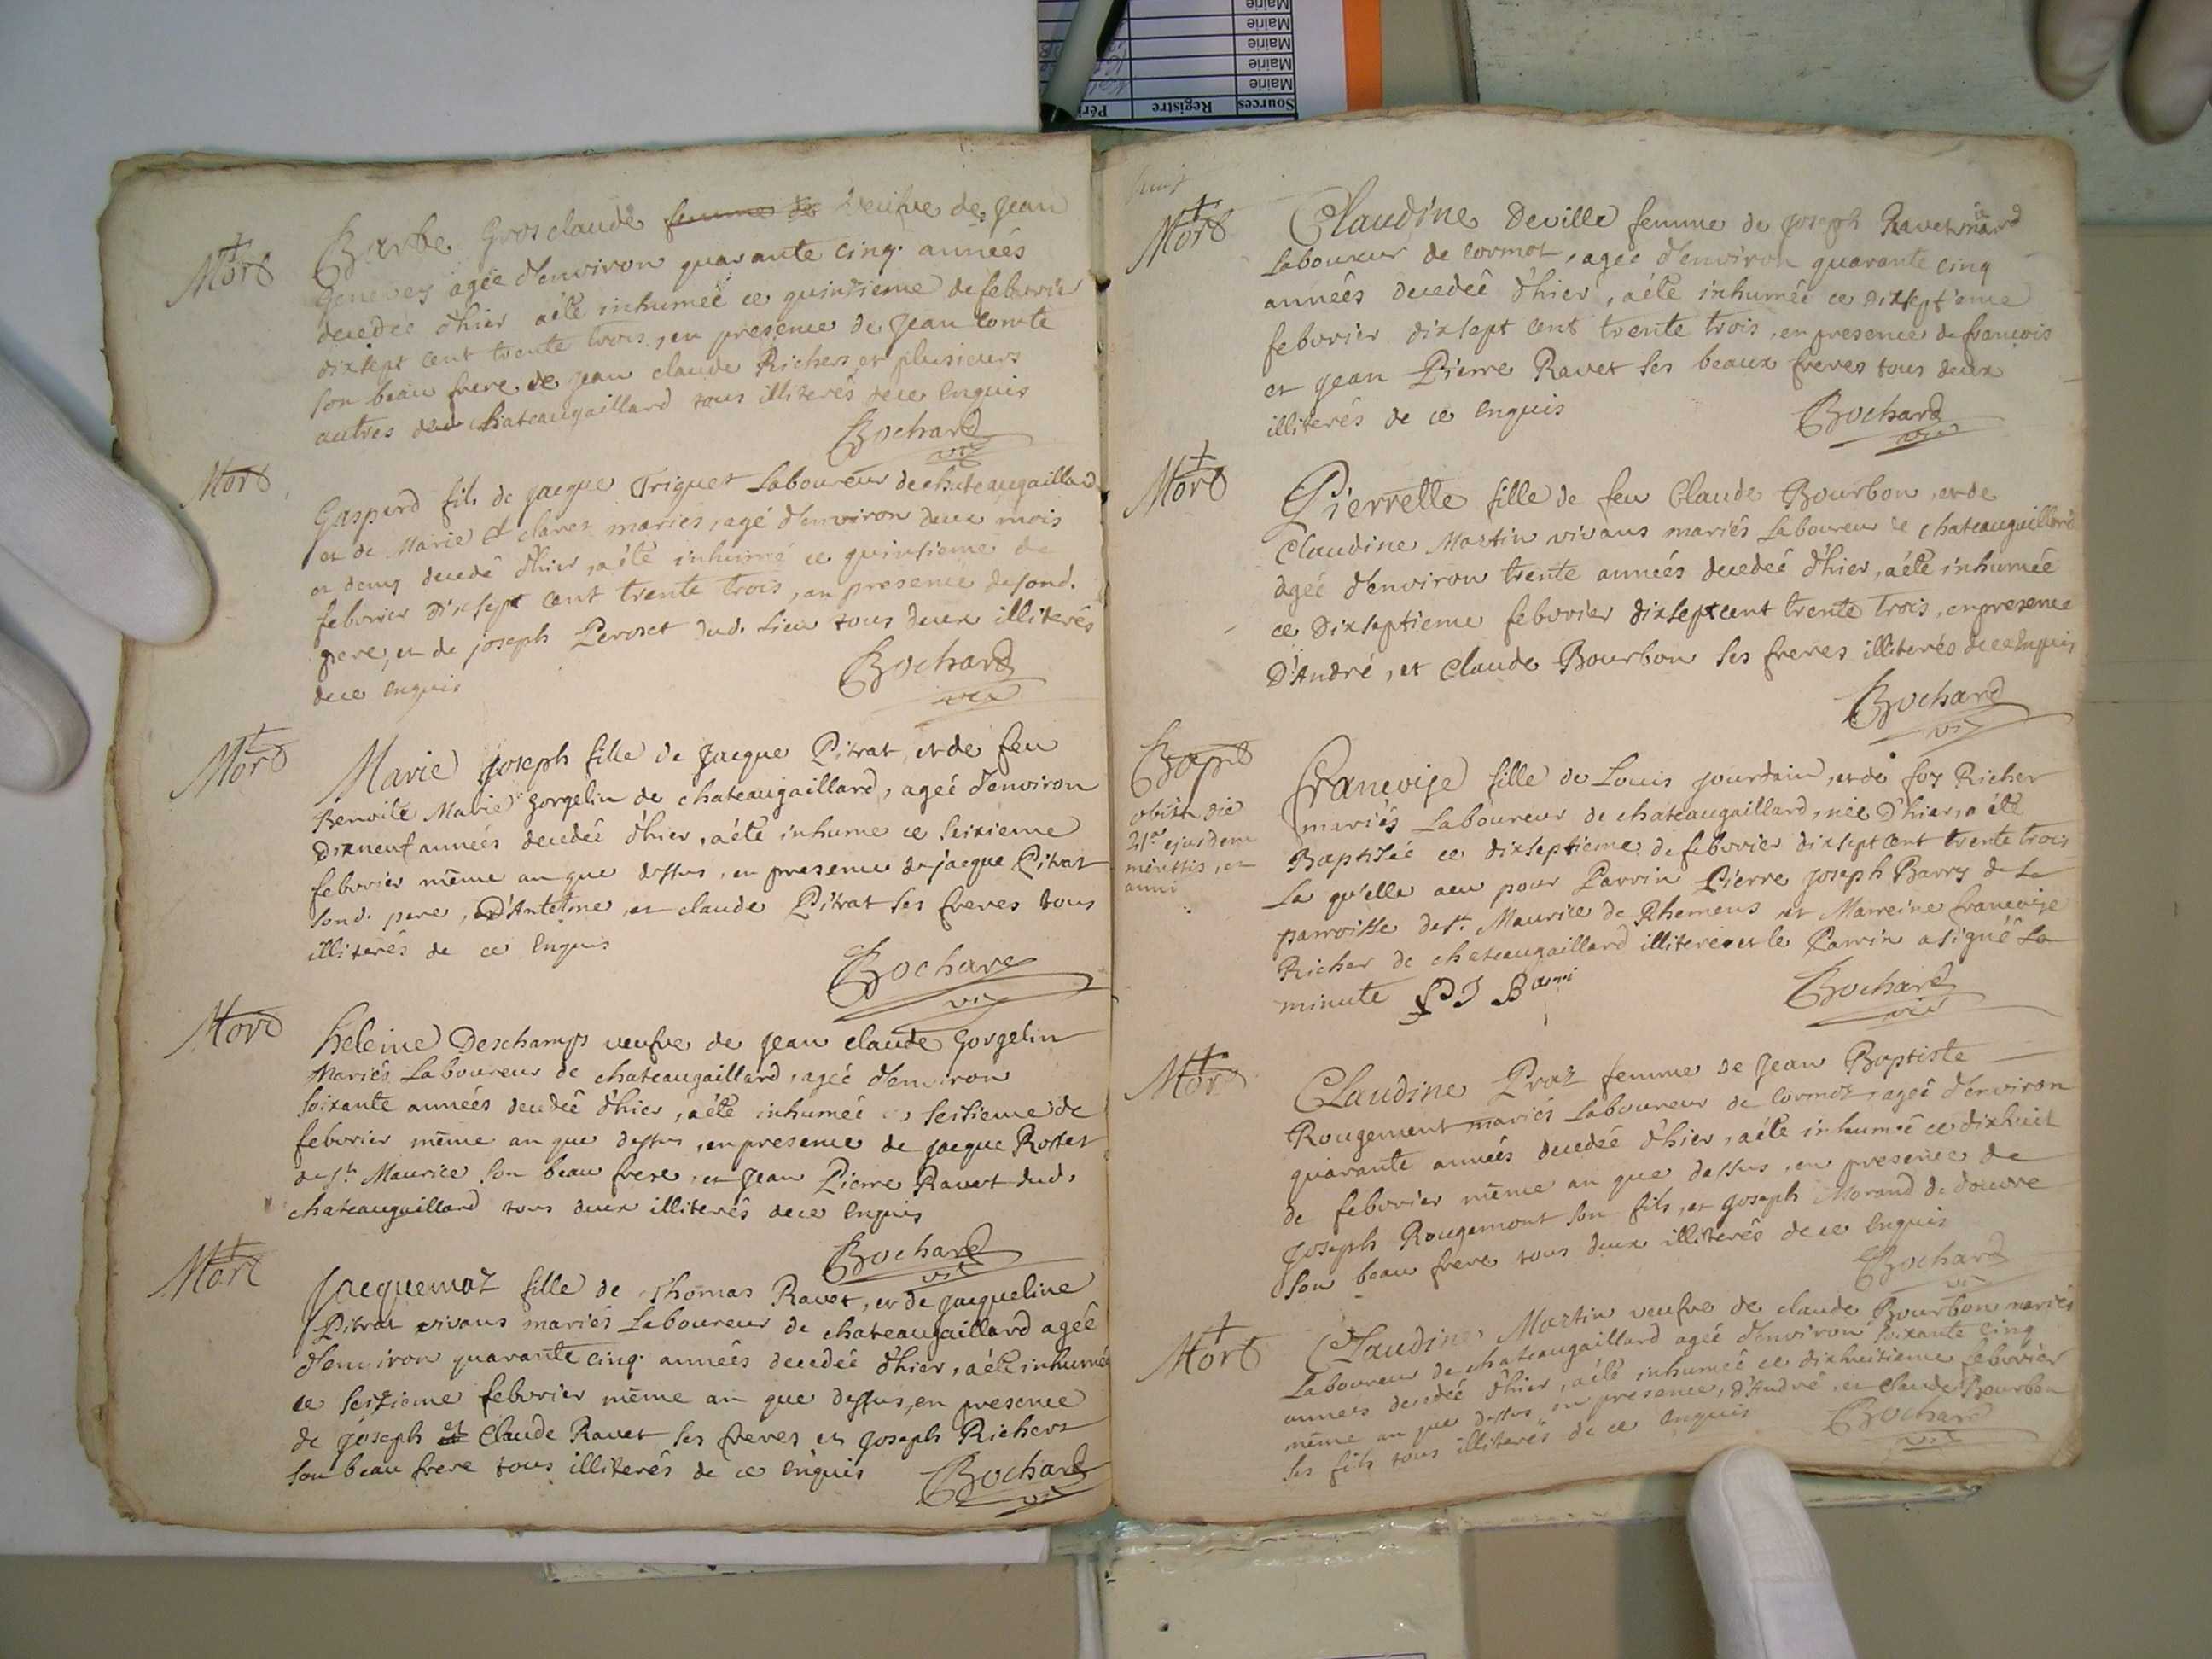 Mairie
Mairie
Mairie
Mairie
Mairie
Sources Registre Péri
Mort
Barbe Grosclaude femme de veufve de Jean
Genevey agée d'environ quarante cinq années
decedée d'hier a été inhumée ce quinzieme de febvrier
dixsept cent trente trois, en presence de Jean Comte
son beau frere, de Jean claude Richers et plusieurs
autres dud chateaugaillard tous illiterés de ce Enquis
Bochard
vic
Mort
Gaspard fils de Jacque Triquet Laboureur de chateaugaillard
et de Marie Claret mariés, agé d'environ deux mois
et demy decedé d'hier, a été inhumé ce quinzieme de
febvrier dixsept cent trente trois, en presence de sond.
pere, et de joseph Peroset dud. Lieu tous deux illiterés
de ce Enquis
Bochard
vic
Mort
Marie Joseph fille de Jacque Pitrat, et de feu
Benoite Marie Gorgelin de chateaugaillard, ageé d'environ
Dixneuf années decedée d'hier, a été inhume ce seizieme
febvrier même an que dessus, en presence de jacque Pitrat
sond. pere, d'Antelme, et claude Pitrat ses freres tous
illiterés de ce Enquis
Bochard
vic
Mort
heleine Deschamps veufve de Jean claude Gorgelin
Mariés Laboureur de chateaugaillard, ageé d'environ
soixante années decedée d'hier, a été inhumée ce seizieme de
febvrier même an que dessus, en presence de jacque Rosset
de st. Maurice son beau frere, et Jean Pierre Ravet dud.
chateaugaillard tous deux illiterés de ce Enquis
Bochard
vic
Mort
Jacquemaz fille de Thomas Ravet, et de Jacqueline
Pitrat vivans mariés Laboureur de chateaugaillard ageé
d'environ quarante cinq années decedée d'hier, a été inhumée
ce seizieme febvrier même an que dessus, en presence
de joseph et Claude Ravet ses freres et Joseph Richers
son beau frere tous illiterés de ce Enquis
Bochard
vic
Mort
Claudine Deville femme de Joseph Ravet
Laboureur de Cormoz, ageé d'environ quarante cinq
années decedée d'hier, a été inhumée ce dixseptieme
febvrier dixsept cent trente trois, en presence de francois
et Jean Pierre Ravet ses beaux freres tous deux
illiterés de ce Enquis
Bochard
vic
Mort
Pierrette fille de feu Claude Bourbon, et de
Claudine Martin vivans mariés Laboureur de chateaugaillard
agée d'environ trente années decedée d'hier, a été inhumée
ce Dixseptieme febvrier dixsept cent trente trois, en presence
D'André, et Claude Bourbon ses freres illiterés de ce Enquis
Bochard
vic
Bapt
obiit die
21a ejusdem
menssis, et
anni
Francoise fille de Louis Jourdain, et de foy Richer
mariés Laboureur de chateaugaillard, née d'hier, a été
Baptisée ce dixseptieme de febvrier dixsept cent trente trois
La qu'elle a eu pour Parrin Pierre joseph Barry de La
parroisse de st. Maurice de Rhemens et Marreine francoise
Richer de chateaugaillard illiterée et le Parrin a signé La
minute PJ Barri
Bochard
vic
Mort
Claudine Praz femme de Jean Baptiste
Rougemont mariés Laboureur de Cormoz, ageé d'environ
quarante années decedée d'hier, a été inhumée ce dixhuit
de febvrier même an que dessus, en presence de
Joseph Rougemont son fils, et Joseph Morand de douvre
son beau frere tous deux illiterés de ce Enquis
Bochard
vic
Mort
Claudine Martin veufve de claude Bourbon mariés
Laboureur de chateaugaillard agée d'environ soixante cinq
années decedée d'hier, a été inhumée ce dixhuitieme febvrier
même an que dessus en presence, d'André, et Claude Bourbon
ses fils tous illiterés de ce Enquis
Bochard
vic